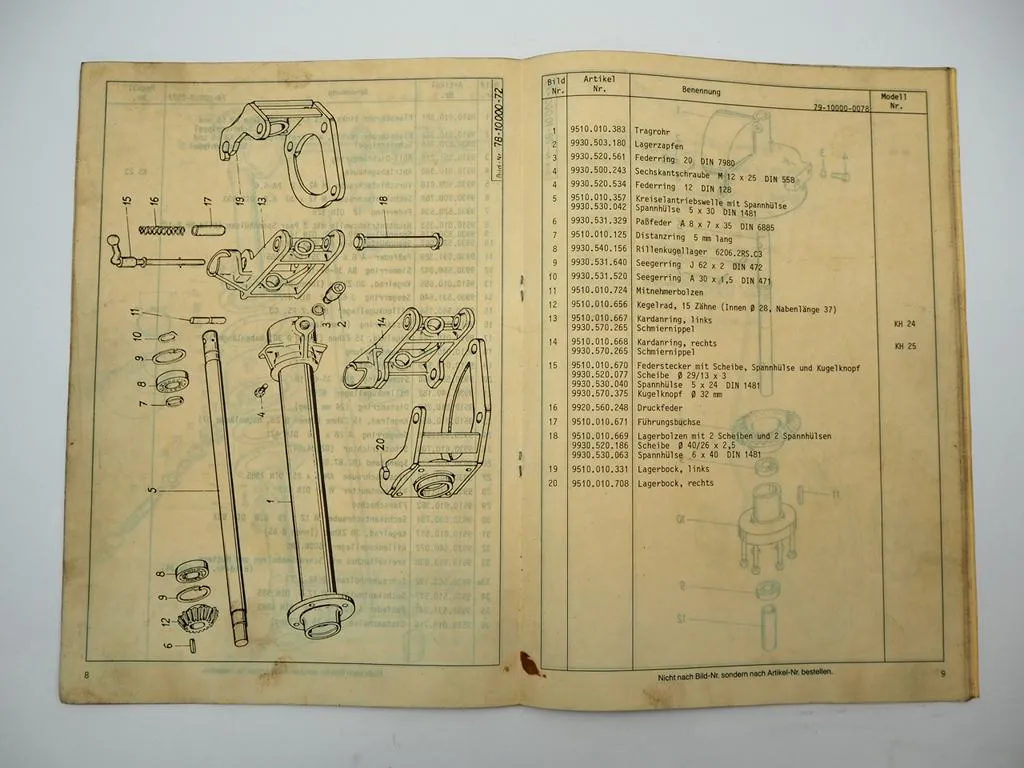 Bild-Nr. 78-10000-72
15
16
17
19
13
18
11
3
2
14
10
9
8
7
4
20
5
1
8
9
12
6
8
Bild Nr. Artikel Nr. Benennung Modell Nr.
79-10000-0078
1 9510.010.383 Tragrohr
2 9930.503.180 Lagerzapfen
3 9930.520.561 Federring 20 DIN 7980
4 9930.500.243 Sechskantschraube M 12 x 25 DIN 558
4 9930.520.534 Federring 12 DIN 128
5 9510.010.357 Kreiselantriebswelle mit Spannhülse
9930.530.042 Spannhülse 5 x 30 DIN 1481
6 9930.531.329 Paßfeder A 8 x 7 x 35 DIN 6885
7 9510.010.125 Distanzring 5 mm lang
8 9930.540.156 Rillenkugellager 6206.2RS.C3
9 9930.531.640 Seegerring J 62 x 2 DIN 472
10 9930.531.520 Seegerring A 30 x 1,5 DIN 471
11 9510.010.724 Mitnehmerbolzen
12 9510.010.656 Kegelrad, 15 Zähne (Innen Ø 28, Nabenlänge 37)
13 9510.010.667 Kardanring, links KH 24
9930.570.265 Schmiernippel
14 9510.010.668 Kardanring, rechts KH 25
9930.570.265 Schmiernippel
15 9510.010.670 Federstecker mit Scheibe, Spannhülse und Kugelknopf
9930.520.077 Scheibe Ø 29/13 x 3
9930.530.040 Spannhülse 5 x 24 DIN 1481
9930.570.375 Kugelknopf Ø 32 mm
16 9920.560.248 Druckfeder
17 9510.010.671 Führungsbuchse
18 9510.010.669 Lagerbolzen mit 2 Scheiben und 2 Spannhülsen
9930.520.186 Scheibe Ø 40/26 x 2,5
9930.530.063 Spannhülse 6 x 40 DIN 1481
19 9510.010.331 Lagerbock, links
20 9510.010.708 Lagerbock, rechts
Nicht nach Bild-Nr. sondern nach Artikel-Nr. bestellen.
9